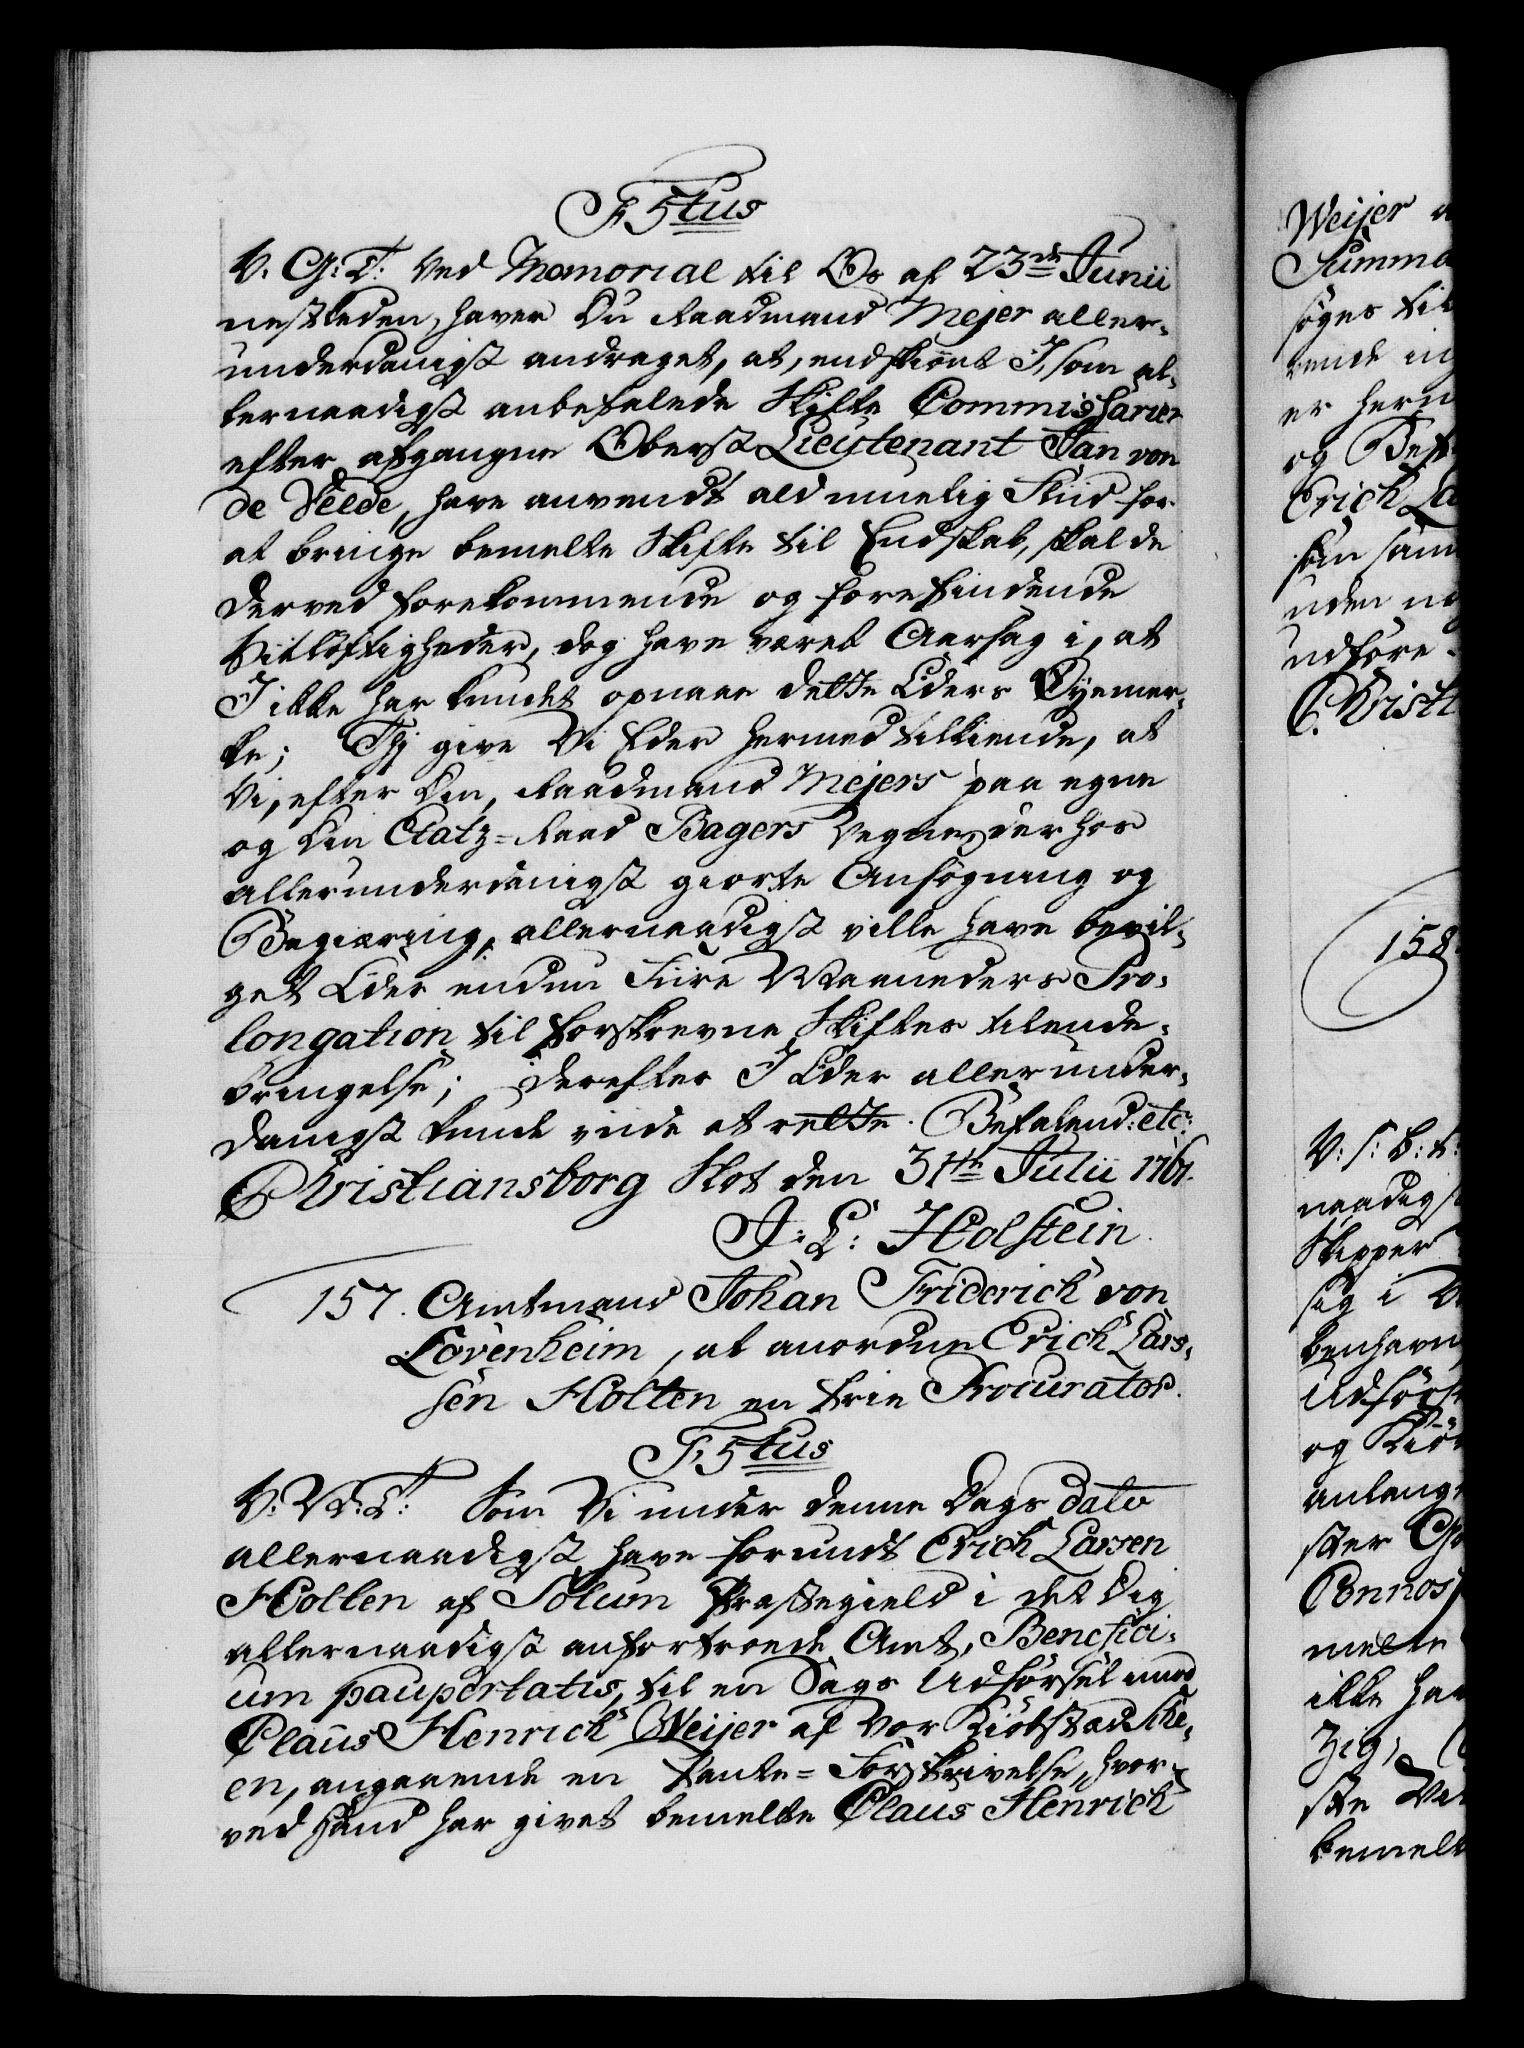 F 5tus
V. G: T: Ved Memorial til Os af 23de Junii
nestleden, haver Du Raadmand Mejer aller-
underdanigst andraget, at, endskiönt I, som al-
lernaadigst anbefalede Skifte Commissarier
efter afgangne Oberst Lieutenant Jan von
de Velde, have anvendt ald muelig Fliid for
at bringe bemelte Skifte til Endskab, skal de
derved forekommende og forefindende
Vitlöftigheder, dog have været Aarsag i, at
I ikke har kundet opnaae dette Eders Öyemer-
ke; Thi give Vi Eder hermed tilkiende, at
Vi, efter Din, Raadmand Mejers paa egne
og Din Etatz-Raad Bagers Vegne, derhos
allerunderdanigst giorte Ansögning og
Begiæring, allernaadigst ville have bevil-
get Eder endnu Fiire Maaneders Pro-
longation til forskrevne Skiftes tilende-
bringelse; Derefter I Eder allerunder-
danigst kunde viide at rette. Befalend: etc:
Christiansborg Slot den 31te Julii 1761.
J: L: Holstein.
157. Amtmand Johan Friderich von
Lövenheim, at anordne Erich Lars-
sen Holten en frie Procurator.
F. 5tus
V. W: T: Som Vi under denne Dags dato
allernaadigst have forundt Erich Larsen
Holten af Solum Præstegield i det Dig
allernaadigst anfortroede Amt, Benefici-
um paupertatis, til en Sags Udförsel imod
Claus Henrich Weijer af Vor Kiöbstæd Ske-
en, angaaende en Pante-Forskrivelse, hvor-
ved hand har givet bemelte Claus Henrich
Weijer
Summa
söges til
rende
er her
og Bef
Erich La
som
uden
udföre
Christ
158.
V: S: B: T:
naadigst
Skipper
sig i
benhavn
Udförs
og Kiö
anlang
ster
Connos
melte
ikke har
zig,
ste
bemelt